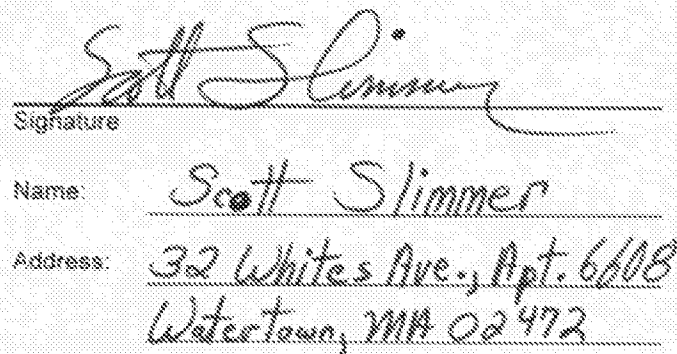 Scott Slimmer
Signature
Name: Scott Slimmer
Address: 32 Whites Ave., Apt. 6608
Watertown, MA 02472